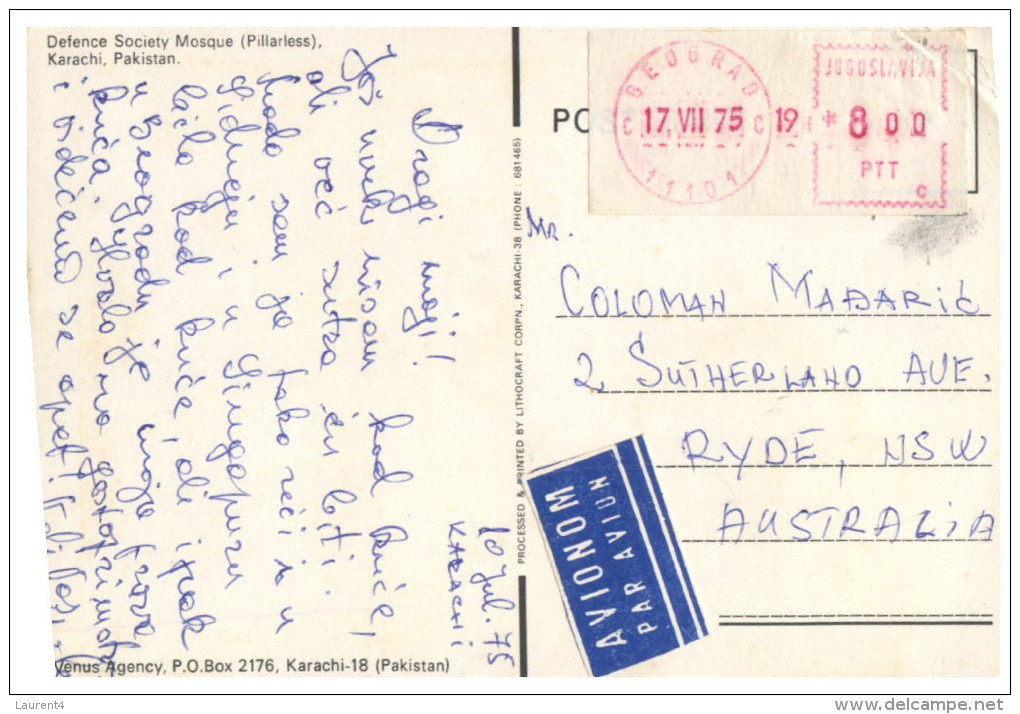 Defence Society Mosque (Pillarless),
Karachi, Pakistan.
10 Jul. 75
KARACHI
Dragi moji!
Još uvek nisam kod kuće,
ali već sutra ću biti.
kada sam ja tako reći i u
Sidneju i u Singapuru
bila kod kuće ali ipak
u Beogradu je moja prava
kuća. Hvala na gostoprimst
i videćemo se opet!
Venus Agency, P.O.Box 2176, Karachi-18 (Pakistan)
PROCESSED & PRINTED BY LITHOCRAFT CORPN., KARACHI-38 (PHONE : 681465)
PO
BEOGRAD
17 VII 75 19
11101
JUGOSLAVIJA
* 8 00
PTT
C
Mr.
COLOMAN MAĐARIĆ
2 SUTHERLAND AVE.
RYDE, NSW
AUSTRALIA
AVIONOM
PAR AVION
Laurent4
http://www.delcampe.net